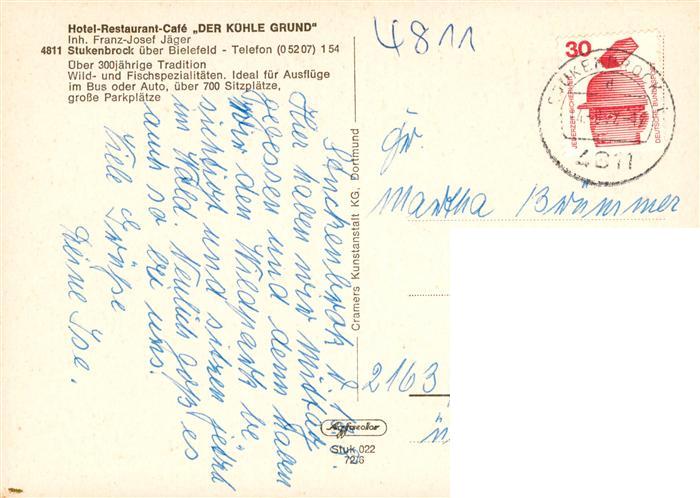 Hotel-Restaurant-Café „DER KÜHLE GRUND“
Inh. Franz-Josef Jäger
4811 Stukenbrock über Bielefeld - Telefon (0 52 07) 1 54
Über 300jährige Tradition
Wild- und Fischspezialitäten. Ideal für Ausflüge
im Bus oder Auto, über 700 Sitzplätze,
große Parkplätze
4811
30
JEDERZEIT SICHERHEIT
DEUTSCHE BUNDESPOST
STUKENBROCK
4811
Fr.
Martha Brümmer
2163
Cramers Kunstanstalt KG, Dortmund
Hier haben wir mittag
gegessen und dann haben
wir den Wildpark be
sichtigt und sitzen jetzt
im Wald. Neulich goß es
auch so bei uns!
Viele Grüße
Deine Ilse.
Stuk 022
72/6